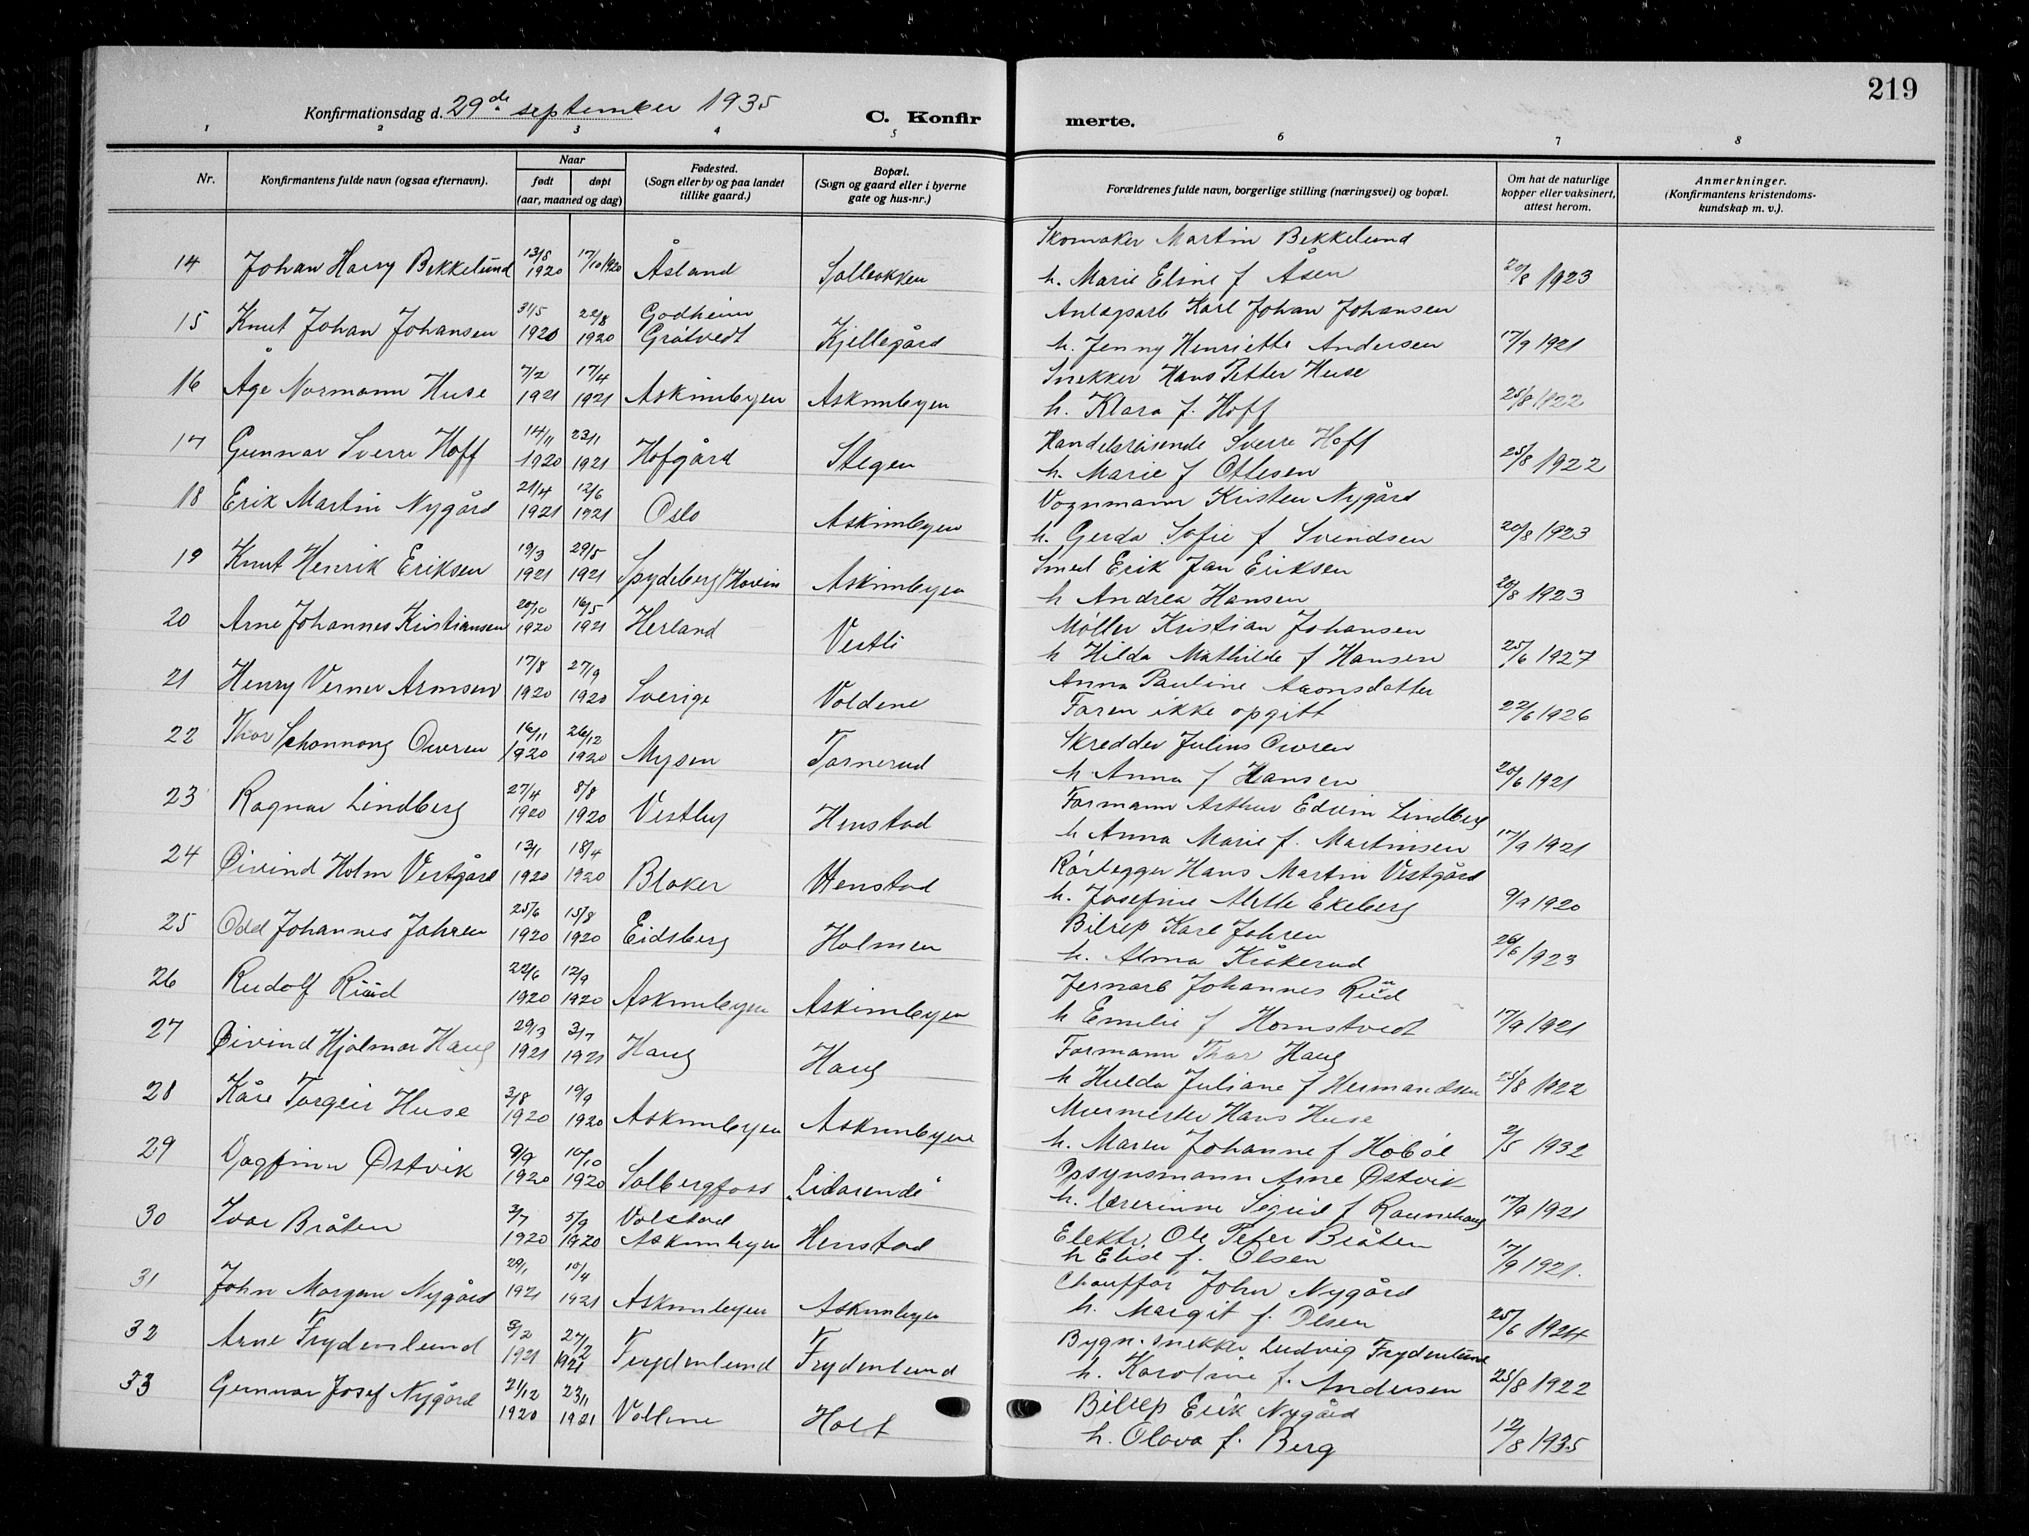 219
Konfirmationsdag d. 29de september 1935
C. Konfir merte.
1 2 3 4 5 6 7 8
Nr.
Konfirmantens fulde navn (ogsaa efternavn).
Naar
født døpt
(aar, maaned og dag)
Fødested.
(Sogn eller by og paa landet
tillike gaard.)
Bopæl.
(Sogn og gaard eller i byerne
gate og hus-nr.)
Forældrenes fulde navn, borgerlige stilling (næringsvei) og bopæl.
Om hat de naturlige
kopper eller vaksinert,
attest herom.
Anmerkninger.
(Konfirmantens kristendoms-
kundskap m. v.).
Skomaker Martin Bekkelund
14 Johan Harry Bekkelund 13/5 1920 17/10 1920 Åsland Solbakken
h. Marie Eline f Åsen 20/8 1923
15 Knut Johan Johansen 31/5 1920 22/8 1920 Godheim Grötvedt Kjellegård
Anlagsarb Karl Johan Johansen
h. Jenny Henriette Andersen 17/9 1921
16 Åge Normann Huse 7/2 1921 17/4 1921 Askimbyen Askimbyen
Snekker Hans Petter Huse
h. Klara f. Hoff 25/8 1922
17 Gunnar Sverre Hoff 14/11 1920 23/1 1921 Hofgård Stegen
Handelsreisende Sverre Hoff
h. Marie f Ottesen 25/8 1922
18 Erik Martin Nygård 21/4 1921 12/6 1921 Oslo Askimbyen
Vognmann Kristen Nygård
h. Gerda Sofie f Svendsen 20/8 1923
19 Knut Henrik Eriksen 19/3 1921 29/5 1921 Spydeberg/Hovin Askimbyen
Smed Erik Jan Eriksen
h Andrea Hansen 20/8 1923
20 Arne Johannes Kristiansen 20/10 1920 16/5 1921 Herland Vestli
Møller Kristian Johansen
h Hilda Mathilde f Hansen 25/6 1927
21 Henry Verner Armsen 17/8 1920 27/9 1920 Sverige Voldene
Anna Pauline Aronsdatter
Faren ikke opgitt 22/6 1926
22 Thor Schonnong Owren 16/11 1920 26/12 1920 Mysen Tornerud
Skredder Julius Owren
h Anna f Hansen 20/6 1921
23 Ragnar Lindberg 27/4 1920 8/8 1920 Vestby Henstad
Formann Arthur Edvin Lindberg
h Anna Marie f. Martinsen 17/9 1921
24 Øivind Holm Vestgård 13/1 1920 18/4 1920 Blaker Henstad
Rørlegger Hans Martin Vestgård
h. Josefine Alette Ekeberg 9/9 1920
25 Odd Johannes Jahren 25/6 1920 15/8 1920 Eidsberg Holmen
Bilrep Karl Jahren
h. Alma Kråkerud 26/6 1923
26 Rudolf Ruud 22/6 1920 12/9 1920 Askimbyen Askimbyen
Jernarb Johannes Ruud
h Emilie f Homstvedt 17/9 1921
27 Øivind Hjalmar Haug 29/3 1921 3/7 1921 Haug Haug
Formann Thor Haug
h Hulda Juliane f Hermandsen 25/8 1922
28 Kåre Torgeir Huse 3/8 1920 19/9 1920 Askimbyen Askimbyen
Murmester Hans Huse
h. Maren Johanne f Hobøl 2/5 1932
29 Dagfinn Østvik 9/9 1920 10/10 1920 Solbergfoss "Lidarende"
Opsynsmann Arne Østvik
h. lærerinne Sigrid f Raunehaug 17/9 1921
30 Ivar Bråten 3/7 1920 5/9 1920 Volstad Askimbyen Henstad
Elektr. Ole Peter Bråten
h Elise f. Olsen 17/9 1921.
31 John Morgan Nygård 29/1 1921 10/4 1921 Askimbyen Askimbyen
Chauffør John Nygård
h. Margit f. Olsen 25/6 1924
32 Arne Frydenlund 3/2 1921 27/2 1921 Frydenlund Frydenlund
Bygn. snekker Ludvig Frydenlund
h. Karoline f. Andersen 25/8 1922
33 Gunnar Josef Nygård 21/12 1920 23/1 1921 Vollene Holt
Bilrep Erik Nygård
h. Olava f. Berg 12/8 1935